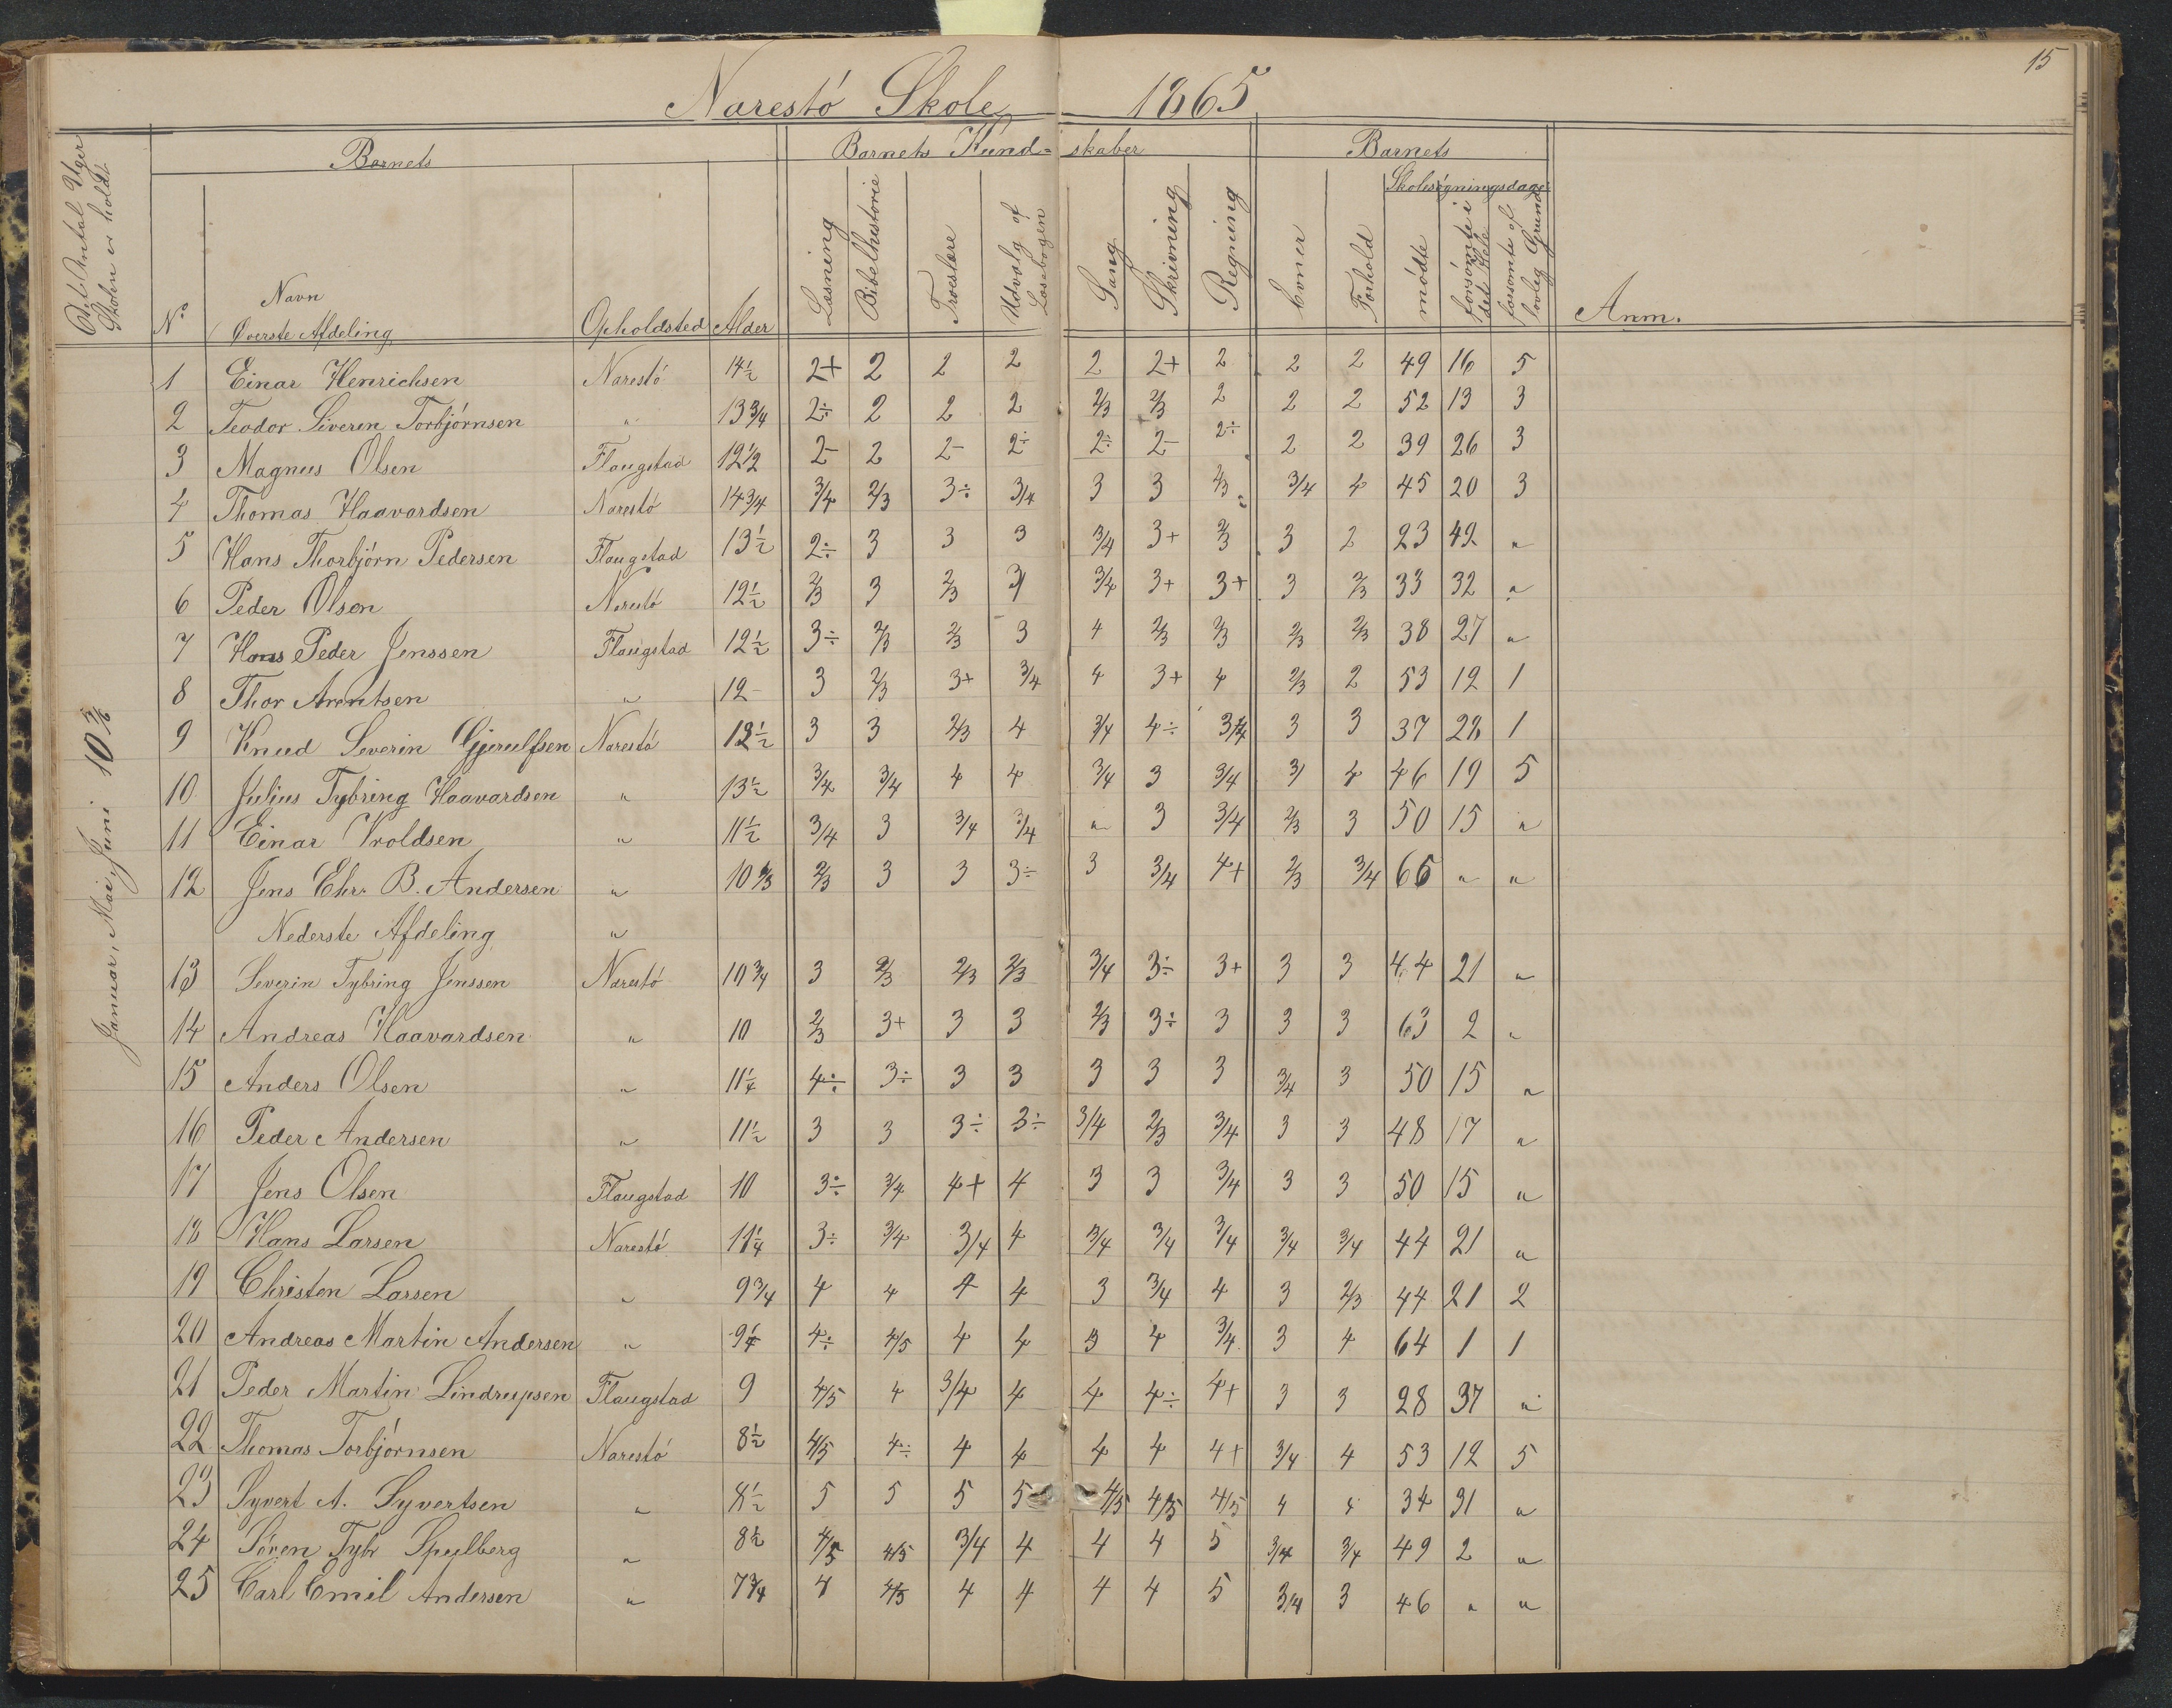 15
Narestó Skole 1865
Det Antal Uger Skolen er holdt
Barnets
Barnets Kund=skaber
Barnets
Skolesøgningsdage:
No
Navn
Øverste Afdeling
Opholdsted Alder
Læsning
Bibelhistorie
Troeslære
Udvalg af Læsebogen
Sang
Skrivning
Regning
Evner
Forhold
mödte
forsömte i det Hele
forsømte af lovlig Grund
Anm.
Januar, Mai, Juni 10 5/6
1 Einar Henrichsen Narestó 14½ 2+ 2 2 2 2 2+ 2 2 2 49 16 5
2 Teodor Siveren Torbjörnsen " 13¾ 2÷ 2 2 2 2/3 2/3 2 2 2 52 13 3
3 Magnus Olsen Flaugstad 12½ 2- 2 2- 2÷ 2÷ 2- 2÷ 2 2 39 26 3
4 Thomas Haavardsen Narestó 14¾ 3/4 2/3 3÷ 3/4 3 3 2/3 3/4 4 45 20 3
5 Hans Thorbjörn Pedersen Flaugstad 13½ 2÷ 3 3 3 3/4 3+ 2/3 3 2 23 42 "
6 Peder Olsen Narestó 12½ 2/3 3 2/3 3 3/4 3+ 3+ 3 2/3 33 32 "
7 Hans Peder Jenssen Flaugstad 12½ 3÷ 2/3 2/3 3 4 2/3 2/3 2/3 2/3 38 27 "
8 Thor Arentsen " 12 3 2/3 3+ 3/4 4 3+ 4 2/3 2 53 12 1
9 Knud Severin Gjerulfsen Narestó 12½ 3 3 2/3 4 3/4 4÷ 3/4 3 3 37 28 1
10 Julius Tybring Haavardsen " 13½ 3/4 3/4 4 4 3/4 3 3/4 3 4 46 19 5
11 Einar Vroldsen " 11½ 3/4 3 3/4 3/4 " 3 3/4 2/3 3 50 15 "
12 Jens Chr. B. Andersen " 10 2/3 2/3 3 3 3÷ 3 3/4 4+ 2/3 3/4 65 " "
Nederste Afdeling "
13 Severin Tybring Jenssen Narestó 10¾ 3 2/3 2/3 2/3 3/4 3÷ 3+ 3 3 44 21 "
14 Andreas Haavardsen " 10 2/3 3+ 3 3 2/3 3÷ 3 3 3 63 2 "
15 Anders Olsen " 11¼ 4÷ 3÷ 3 3 3 3 3 3/4 3 50 15 "
16 Peder Andersen " 11½ 3 3 3÷ 3÷ 3/4 2/3 3/4 3 3 48 17 "
17 Jens Olsen Flaugstad 10 3÷ 3/4 4+ 4 3 3 3/4 3 3 50 15 "
18 Hans Larsen Narestó 11¼ 3÷ 3/4 3/4 4 3/4 3/4 3/4 3/4 3/4 44 21 "
19 Christen Larsen " 9¾ 4 4 4 4 3 3/4 4 3 2/3 44 21 2
20 Andreas Martin Andersen " 9¼ 4÷ 4/5 4 4 3 4 3/4 3 4 64 1 1
21 Peder Martin Lindrupsen Flaugstad 9 4/5 4 3/4 4 4 4÷ 4+ 3 3 28 37 "
22 Thomas Torbjörnsen Narestó 8½ 4/5 4÷ 4 4 4 4 4+ 3/4 4 53 12 5
23 Syvert A. Syvertsen " 8½ 5 5 5 5 4/5 4/5 4/5 4 4 34 31 "
24 Sören Tybr Spulberg " 8½ 4/5 4/5 3/4 4 4 4 5 3/4 3/4 49 2 "
25 Carl Emil Andersen " 7¾ 4 4/5 4 4 4 4 5 3/4 3 46 " "